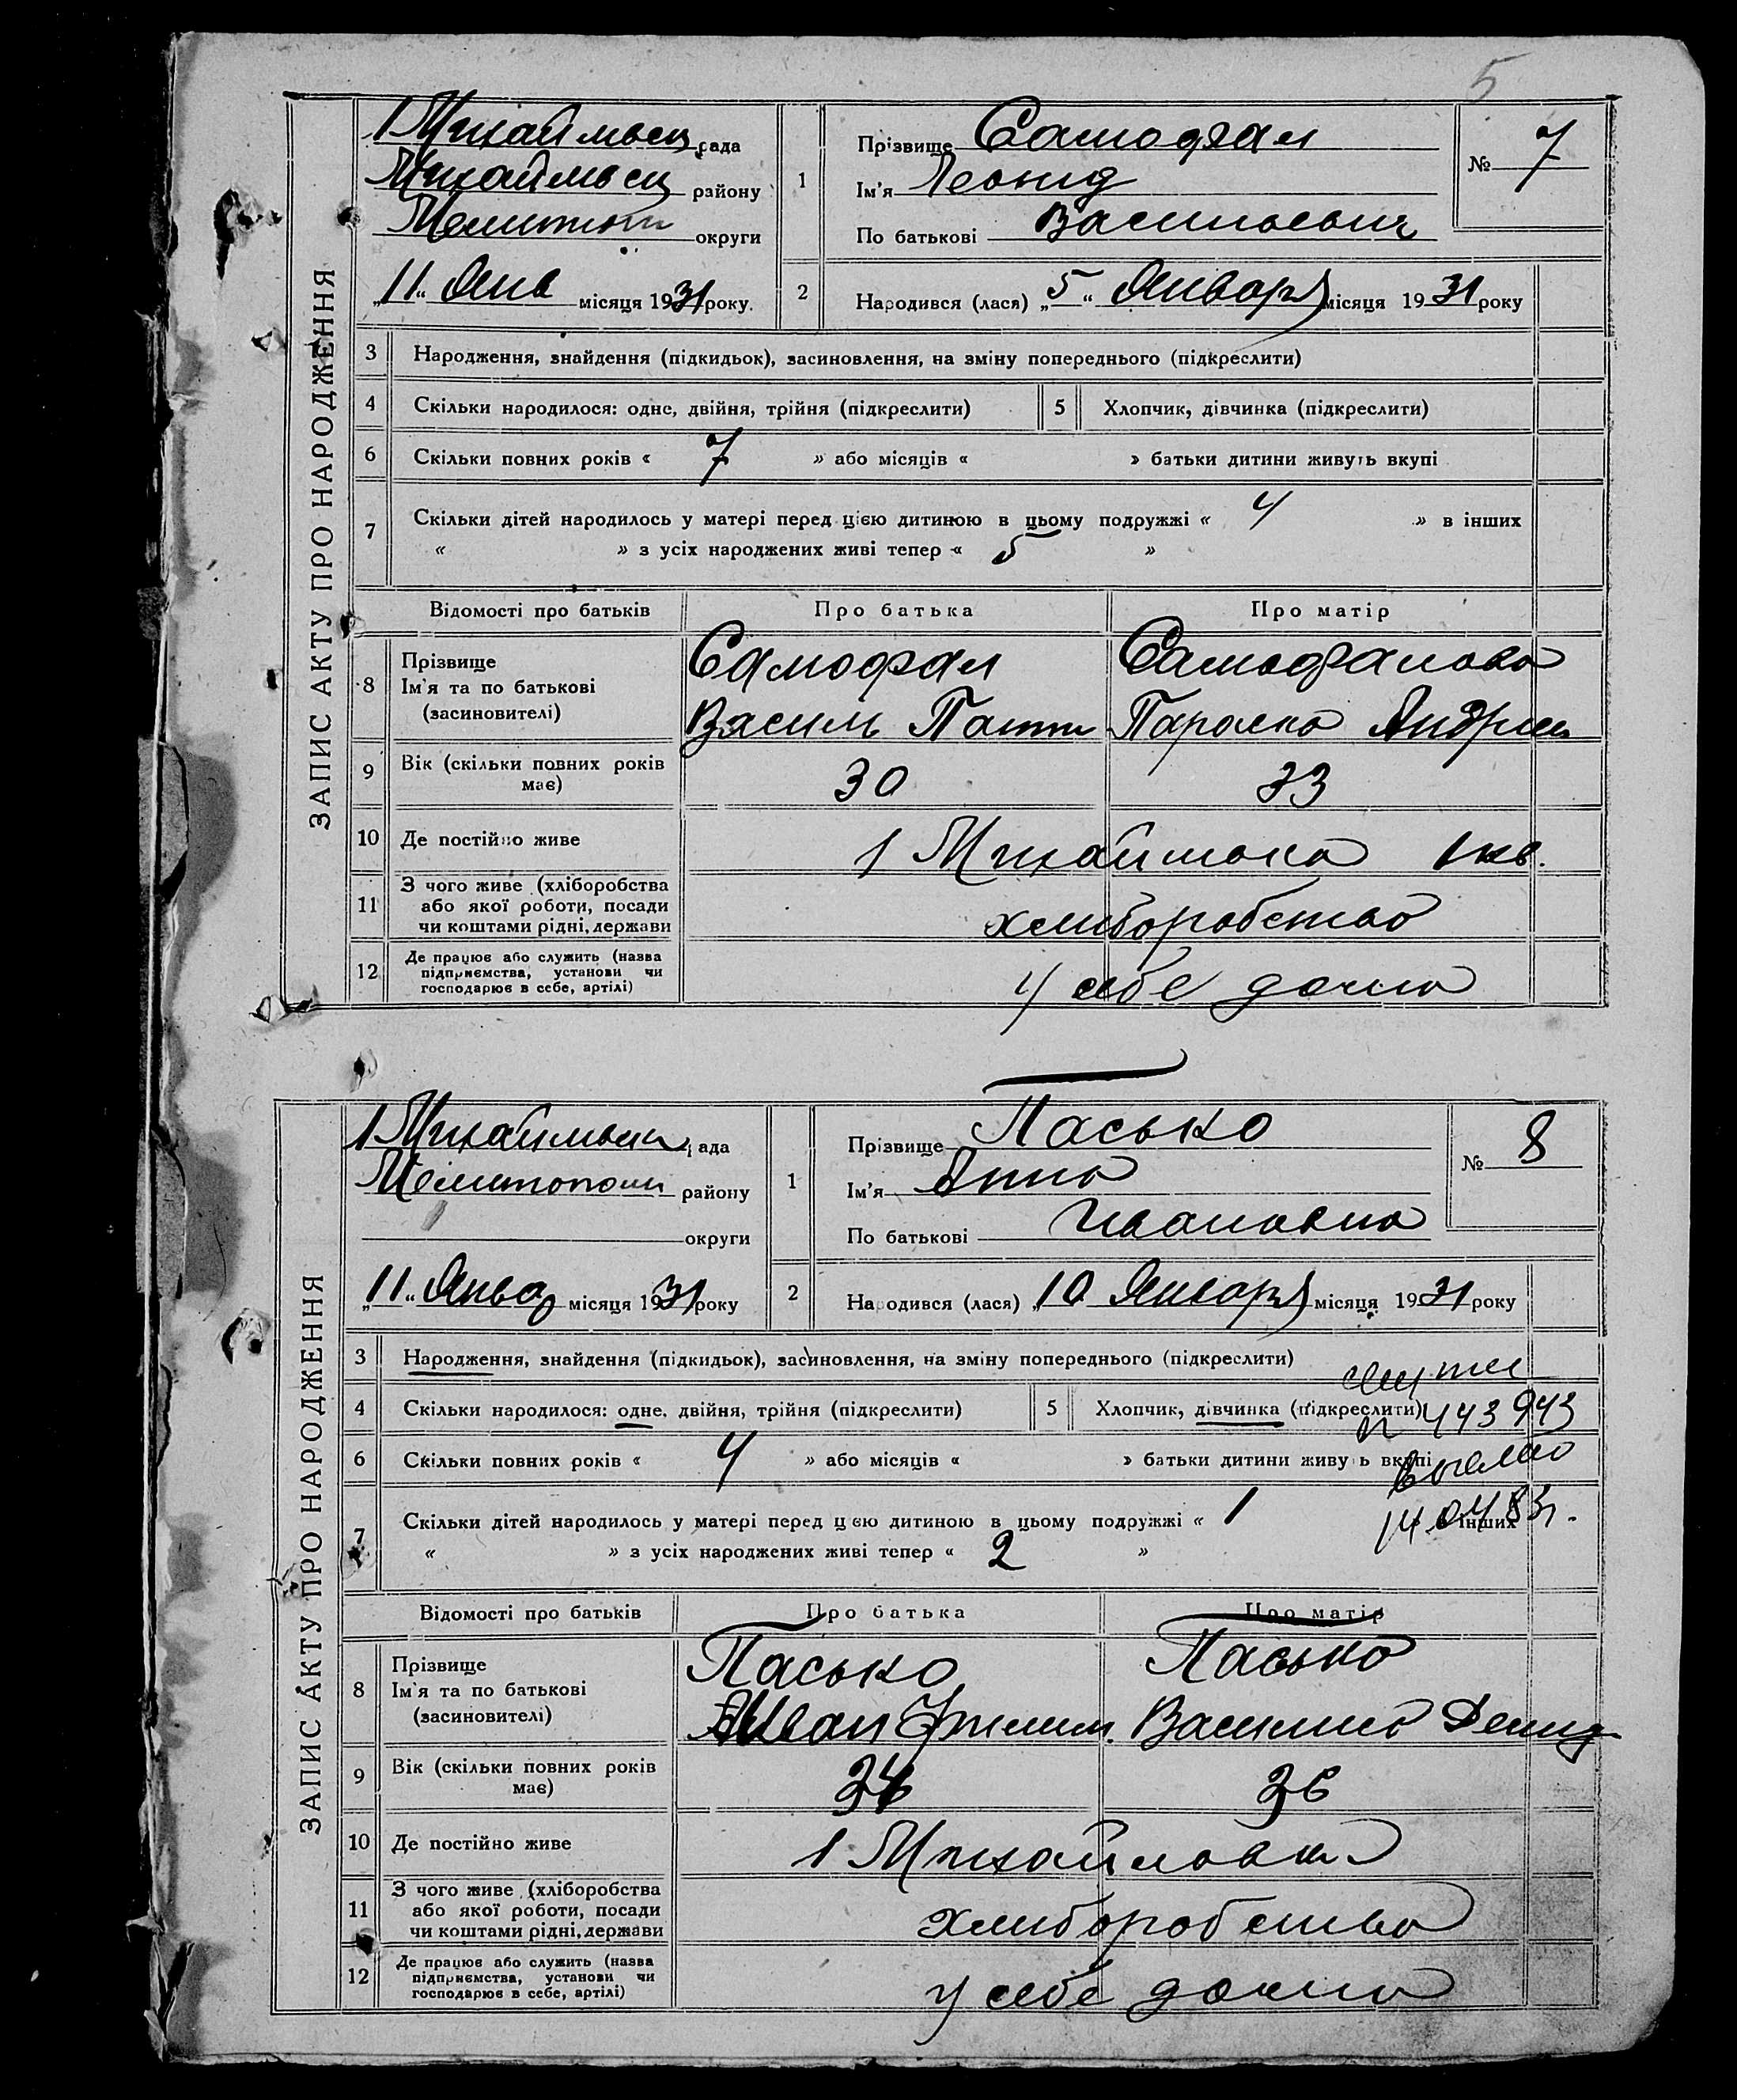 5
ЗАПИС АКТУ ПРО НАРОДЖЕННЯ
1 Михайловск рада
Михайловск району
Мелитоп округи
„11“ Янв місяця 1931 року.
1 Прізвище Самофал
Ім'я Леонид
По батькові Васильевич
№ 7
2 Народився (лася) „5“ Января місяця 1931 року
3 Народження, знайдення (підкидьок), засиновлення, на зміну попереднього (підкреслити)
4 Скільки народилося: одне, двійня, трійня (підкреслити) 5 Хлопчик, дівчинка (підкреслити)
6 Скільки повних років « 7 » або місяців « » батьки дитини живуть вкупі
7 Скільки дітей народилось у матері перед цією дитиною в цьому подружжі « 4 » в інших
« » з усіх народжених живі тепер « 5 »
Відомості про батьків Про батька Про матір
8 Прізвище Самофал Самофалова
Ім'я та по батькові
(засиновителі) Василь Параска Андрии
9 Вік (скільки повних років має) 30 33
10 Де постійно живе 1 Михайловка 1 кв.
11 З чого живе (хліборобства
або якої роботи, посади
чи коштами рідні, держави хлиборобство
12 Де працює або служить (назва
підприємства, установи чи
господарює в себе, артілі) у себе дома
ЗАПИС АКТУ ПРО НАРОДЖЕННЯ
1 Михайловск рада
Мелитополи району
округи
„11“ Январ місяця 1931 року
1 Прізвище Пасько
Ім'я Анна
По батькові Ивановна
№ 8
2 Народився (лася) „10 Января місяця 1931 року
3 Народження, знайдення (підкидьок), засиновлення, на зміну попереднього (підкреслити)
4 Скільки народилося: одне, двійня, трійня (підкреслити) 5 Хлопчик, дівчинка (підкреслити)
443943
6 Скільки повних років « 4 » або місяців « » батьки дитини живуть вкупі
7 Скільки дітей народилось у матері перед цією дитиною в цьому подружжі « 1 інших
14.04.83г.
« » з усіх народжених живі тепер « 2 »
Відомості про батьків Про батька Про матір
8 Прізвище Пасько Пасько
Ім'я та по батькові
(засиновителі) Иван Филип. Василина Демид
9 Вік (скільки повних років має) 26
10 Де постійно живе 1 Михайловка
11 З чого живе (хліборобства
або якої роботи, посади
чи коштами рідні, держави хлиборобство
12 Де працює або служить (назва
підприємства, установи чи
господарює в себе, артілі) у себе дома